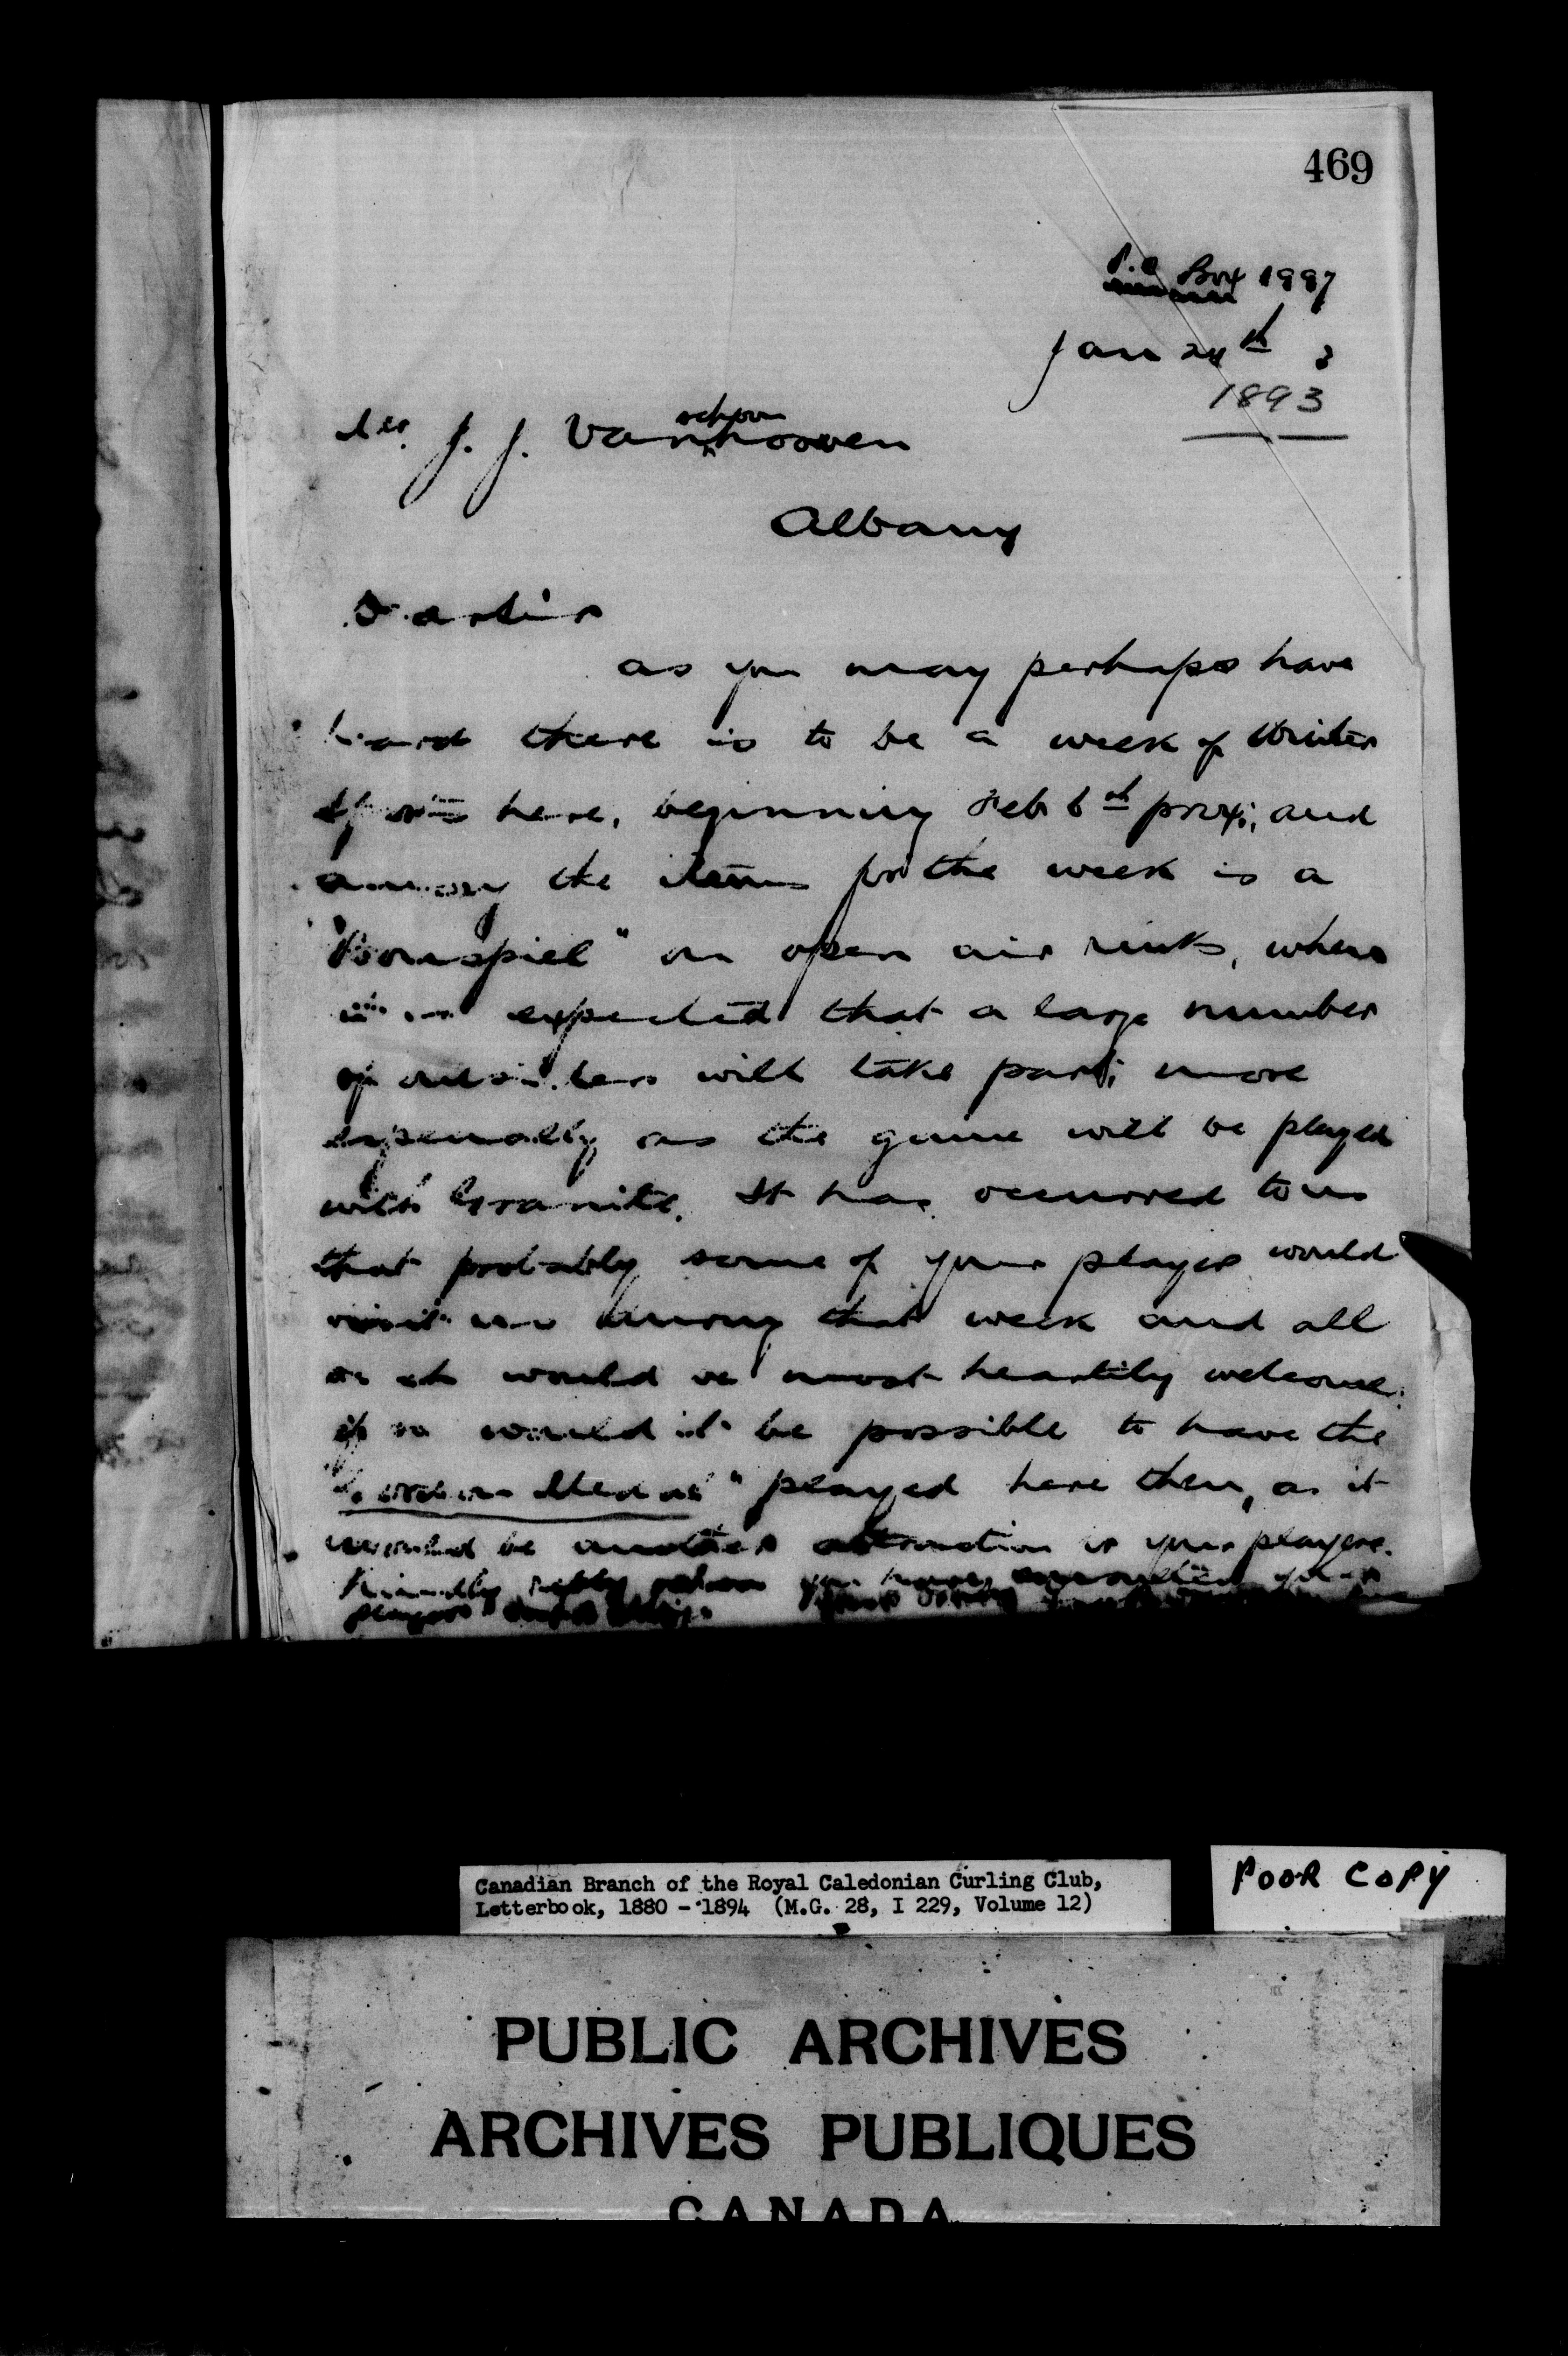 469
P.O Box 1997
Jan 24th 3
1893
Mr. J. J. Vanhooven
schoon
Albany
Dear Sir
as you may perhaps have
heard there is to be a week of Winter
Sports here, beginning Feb 6th prox; and
among the items for the week is a
"Bonspiel" on open air rinks, where
it is expected that a large number
of outsiders will take part; more
especially as the game will be played
with Granite. It has occurred to us
that probably some of your players would
visit us during that week and all
such would be most heartily welcome.
if so would it be possible to have the
"Gordon Medal" played here then, as it
would be another attraction to your players.
Kindly reply when you have consulted your
players
Canadian Branch of the Royal Caledonian Curling Club,
Letterbook, 1880 - 1894 (M.G. 28, I 229, Volume 12)
POOR COPY
PUBLIC ARCHIVES
ARCHIVES PUBLIQUES
CANADA